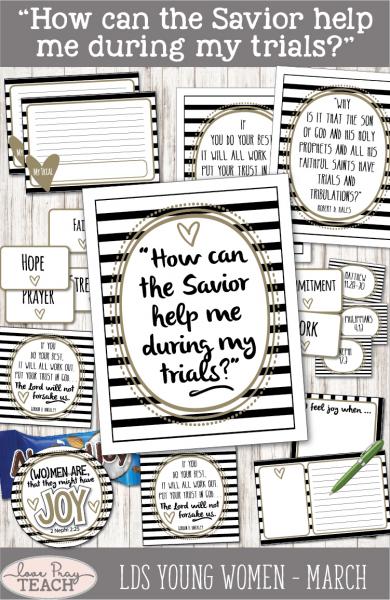 “How can the Savior help
me during my trials?”
MY TRIAL
IF
YOU DO YOUR BEST,
IT WILL ALL WORK
PUT YOUR TRUST IN
“WHY
IS IT THAT THE SON
OF GOD AND HIS HOLY
PROPHETS AND ALL HIS
FAITHFUL SAINTS HAVE
TRIALS AND
TRIBULATIONS?”
ROBERT D. HALES
HOPE
PRAYER
“How can
the Savior
help me
during my
trials?”
MATTHEW
11:28-30
PHILIPPIANS
4:13
IF
YOU DO
YOUR BEST,
IT WILL ALL WORK OUT.
PUT YOUR TRUST IN GOD...
The Lord will not
forsake us.
GORDON B. HINCKLEY
(WO)MEN ARE,
that they might have
JOY
2 Nephi 2:25
IF
YOU DO
YOUR BEST,
IT WILL ALL WORK OUT.
PUT YOUR TRUST IN GOD...
The Lord will not
forsake us.
GORDON B. HINCKLEY
feel joy when ...
Love Pray
TEACH
LDS YOUNG WOMEN - MARCH